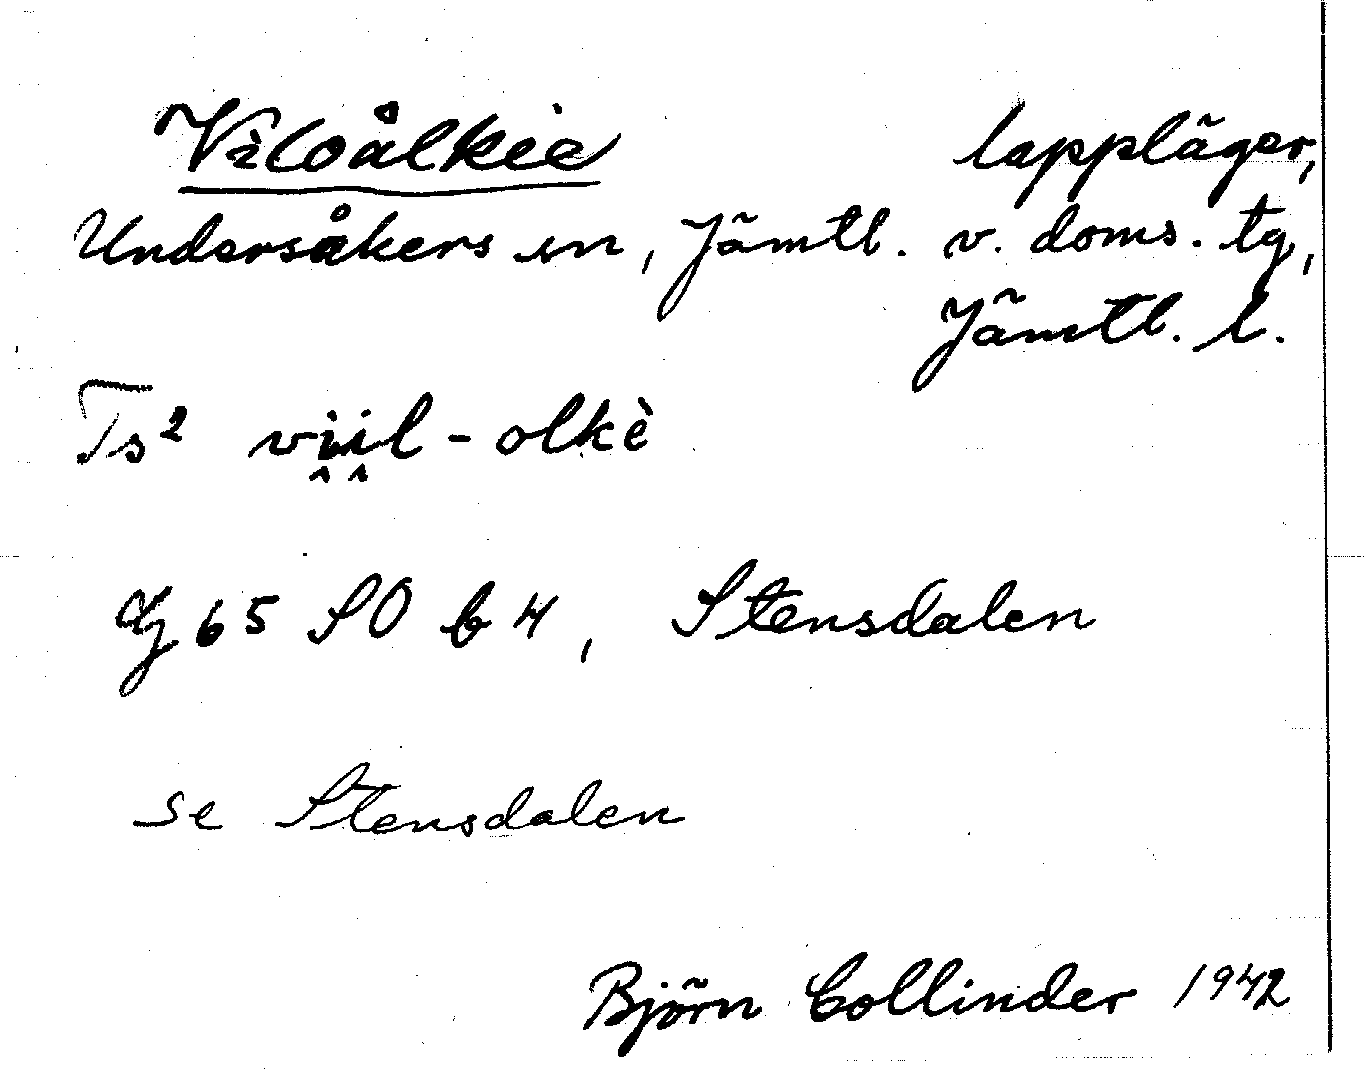 Vìloålkie lappläger,
Undersåkers sn, Jämtl. v. doms. tg,
Jämtl. l.
Ts² vi̭i̭l - olkè
G 65 SO b 4, Stensdalen
se Stensdalen
Björn Collinder 1942